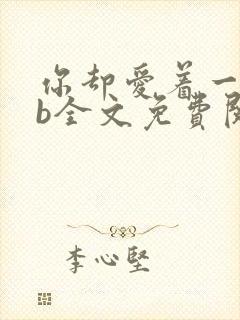 你却爱着一
b全文免费阅
李心坚